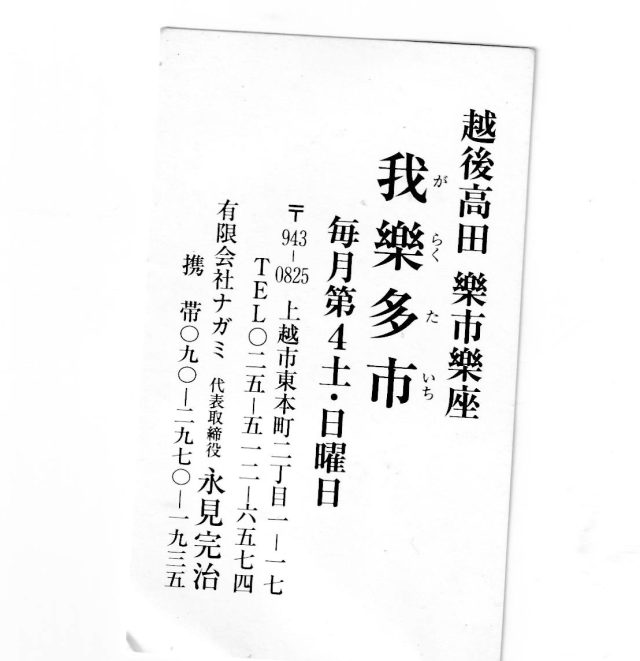 越後高田 樂市樂座
我樂多市
がらくたいち
毎月第4土・日曜日
〒943-0825 上越市東本町二丁目一―一七
TEL〇二五―五一二―六五七四
有限会社ナガミ 代表取締役 永見完治
携帯〇九〇―二九七〇―一九三五